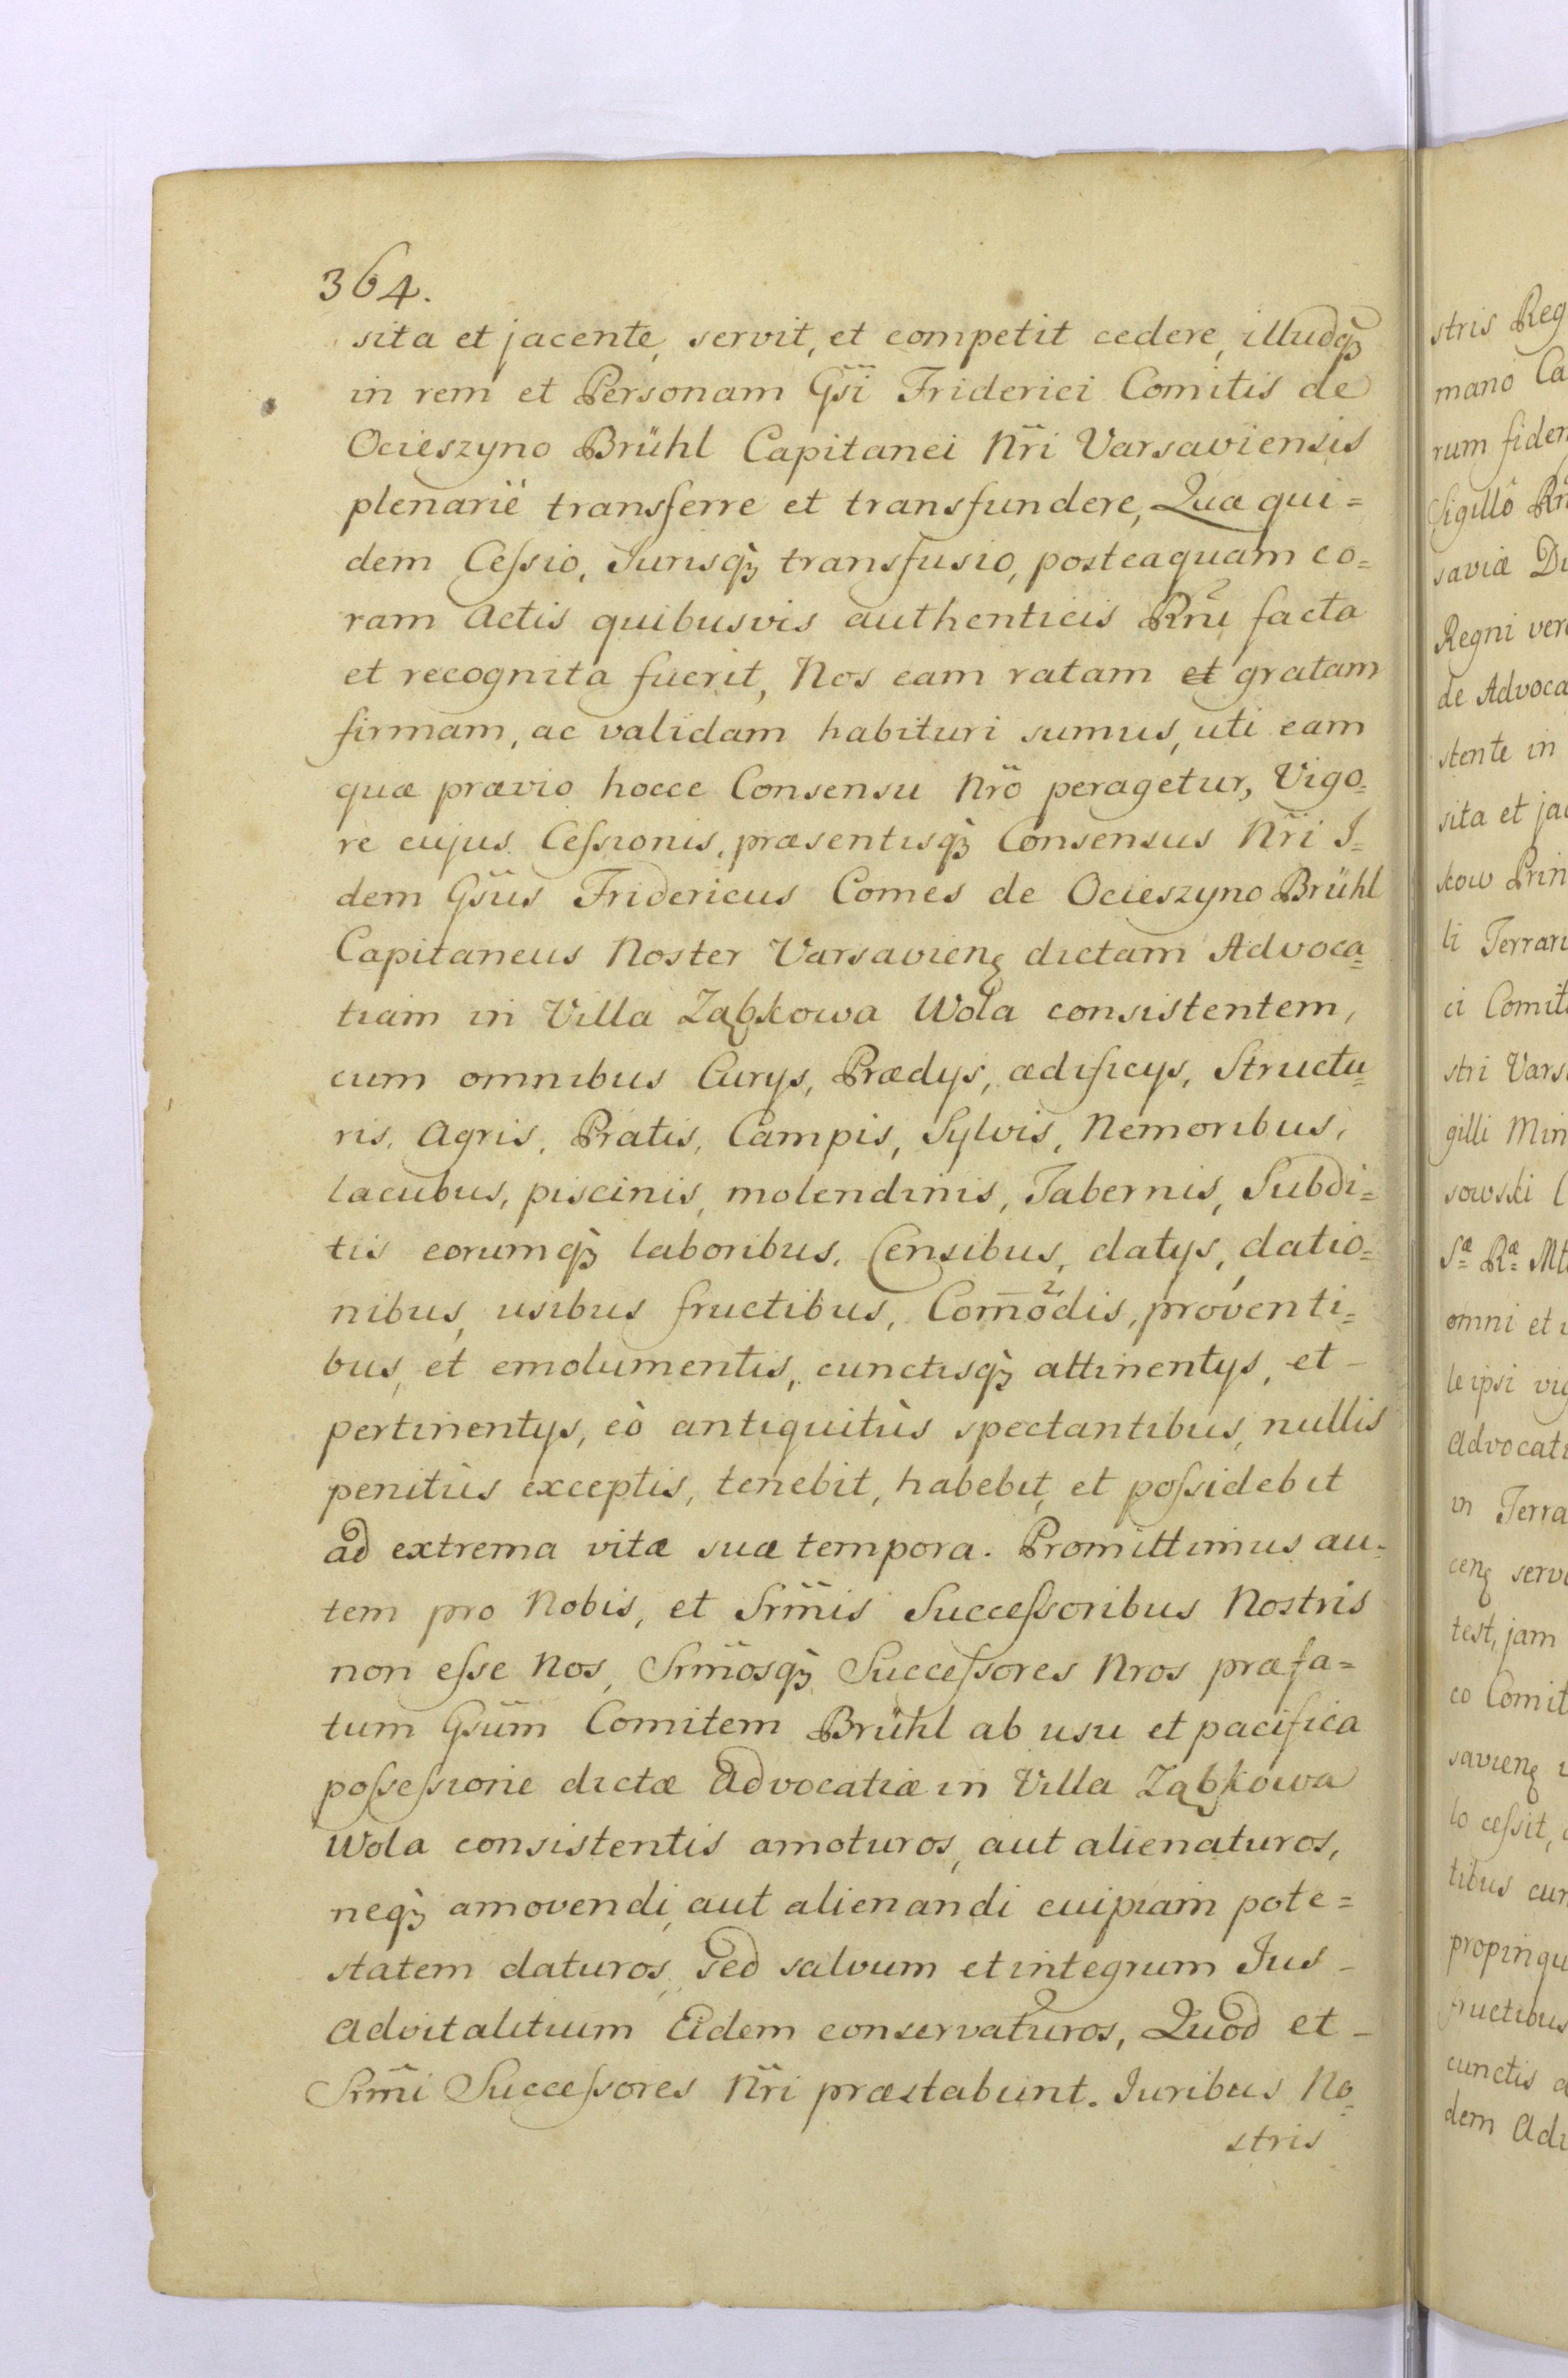 364.
sita et jacente, servit, et competit cedere, illudqꝫ
in rem et Personam Gsi Friderici Comitis de
Ocieszyno Brühl Capitanei Nri Varsaviensis
plenarië transferre et transfundere, Quæ qui=
dem Cessio, Jurisqꝫ transfusio, posteaquam co=
ram Actis quibusvis authenticis Rni facta
et recognita fuerit, Nos eam ratam et gratam
firmam, ac validam habituri sumus, uti eam
quæ prævio hocce Consensu Nrõ peragetur, Vigo=
re cujus Cessionis, præsentisqꝫ Consensus Nri I=
dem Gsus Fridericus Comes de Ocieszyno Brühl
Capitaneus Noster Varsavienꝫ dictam Advoca=
tiam in Villa Ząbkowa Wola consistentem,
cum omnibus Curys, Prædys, ædificys, Structu=
ris, Agris, Pratis, Campis, Sylvis, Nemoribus,
lacubus, piscinis, molendinis, Tabernis, Subdi=
tis eorumqꝫ laboribus, Censibus, datys, datio=
nibus, usibus fructibus, Com̃odis, proventi=
bus, et emolumentis, cunctisqꝫ attinentys, et –
pertinentys, eò antiquitùs spectantibus, nullis
penitùs exceptis, tenebit, habebit, et possidebit
ad extrema vitæ suæ tempora. Promittimus au=
tem pro Nobis, et Srm̃is Successoribus Nostris
non esse Nos, Srmõsqꝫ Successores Nros præfa=
tum Gsum Comitem Brühl ab usu et pacifica
possessione dictæ Advocatiæ in Villa Ząbkowa
Wola consistentis amoturos, aut alienaturos,
neqꝫ amovendi, aut alienandi cuipiam pote=
statem daturos, sed salvum et integrum Jus –
Advitalitium Eidem conservaturos, Quod et –
Srm̃i Successores Nri præstabunt. Juribus No=
stris
stris Reg
mano Ca
rum fidem
Sigillô Rn
saviæ Di
Regni vero
de Advoca
stente in
sita et jac
skow Prin
li Terraru
ci Comiti
stri Varsa
gilli Min
sowski C
Sæ Ræ Mt
omni et
le ipsi vig
Advocati
in Terra
cenꝫ servi
test, jam
co Comit
savienꝫ
lo cessit,
tibus cun
propinqu
fructibus
cunctis a
dem Adv